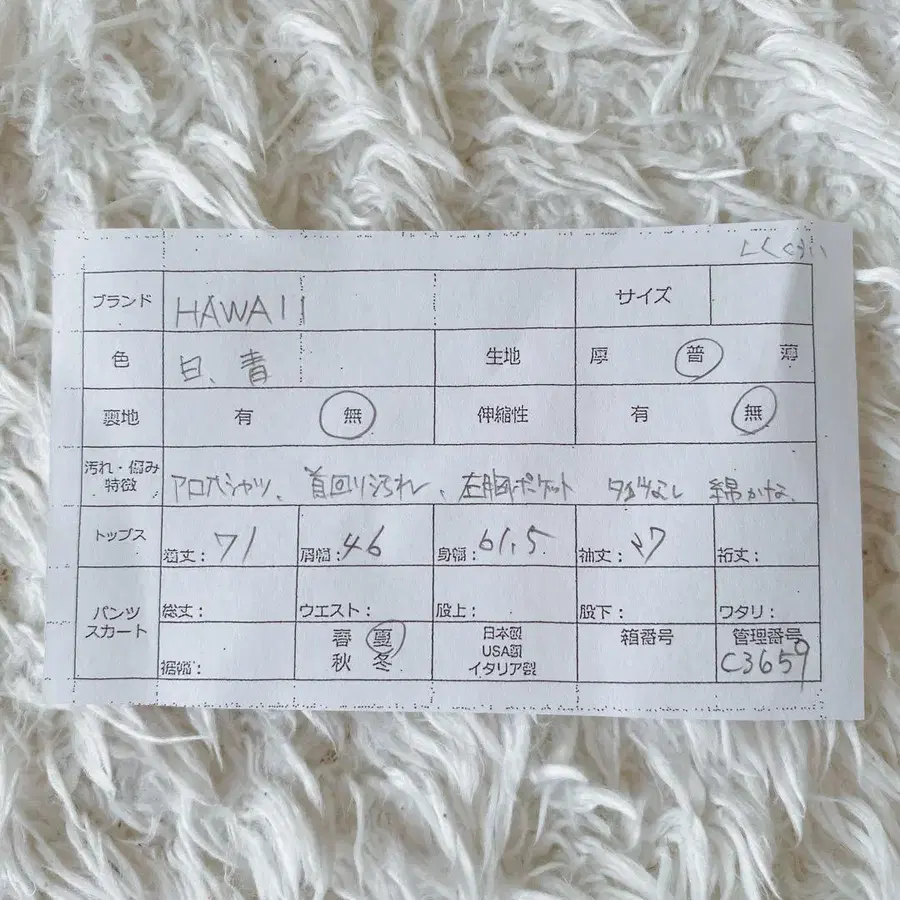 Lくらい
ブランド HAWAII サイズ
色 白、青 生地 厚 普 薄
裏地 有 無 伸縮性 有 無
汚れ・傷み
特徴 アロハシャツ、首回り汚れ、左胸ポケット タグなし 綿かな
トップス 着丈：71 肩幅：46 身幅：61.5 袖丈：27 裄丈：
パンツ
スカート 総丈： ウエスト： 股上： 股下： ワタリ：
裾幅： 春 夏
秋 冬 日本製
USA製
イタリア製 箱番号 管理番号
C3659